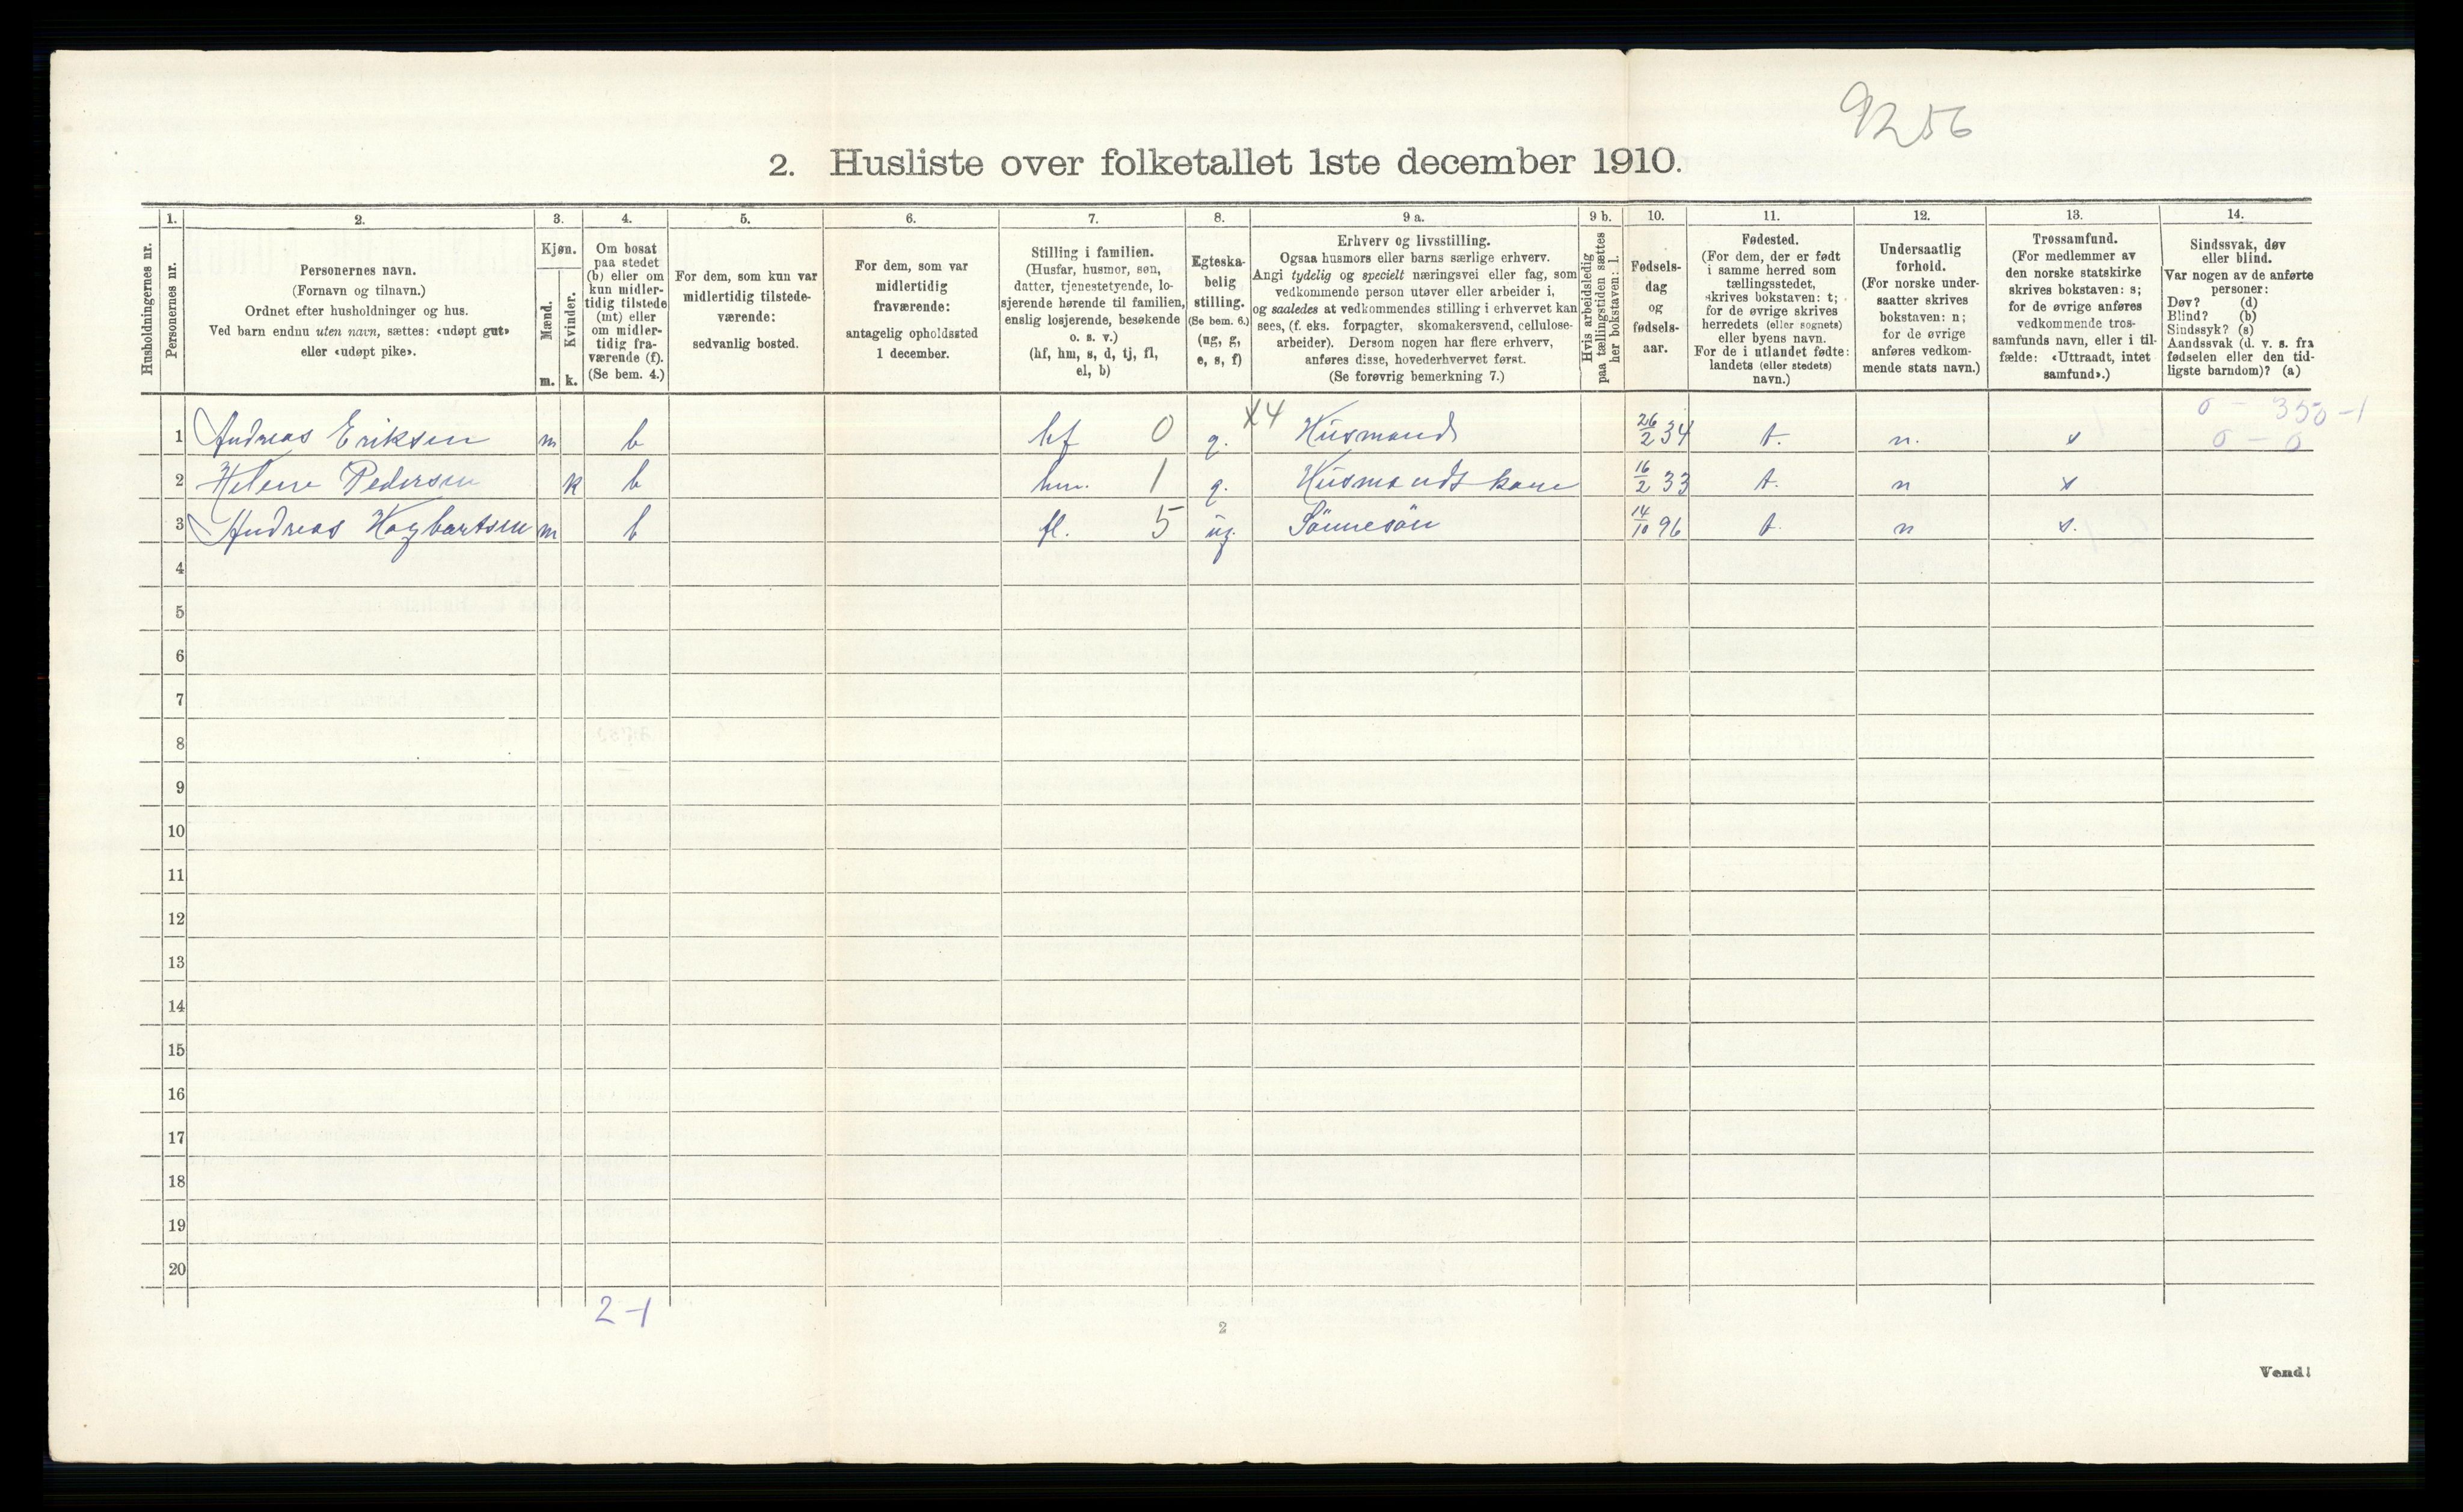 9256
2. Husliste over folketallet 1ste december 1910.
1. 2. 3. 4. 5. 6. 7. 8. 9 a. 9 b. 10. 11. 12. 13. 14.
Husholdningernes nr.
Personernes nr.
Personernes navn.
(Fornavn og tilnavn.)
Ordnet efter husholdninger og hus.
Ved barn endnu uten navn, sættes: «udøpt gut»
eller «udøpt pike».
Kjøn.
Mænd.
Kvinder.
m. k.
Om bosat
paa stedet
(b) eller om
kun midler-
tidig tilstede
(mt) eller
om midler-
tidig fra-
værende (f).
(Se bem. 4.)
For dem, som kun var
midlertidig tilstede-
værende:
sedvanlig bosted.
For dem, som var
midlertidig
fraværende:
antagelig opholdssted
1 december.
Stilling i familien.
(Husfar, husmor, søn,
datter, tjenestetyende, lo-
sjerende hørende til familien,
enslig losjerende, besøkende
o. s. v.)
(hf, hm, s, d, tj, fl,
el, b)
Egteska-
belig
stilling.
(Se bem. 6.)
(ug, g,
e, s, f)
Erhverv og livsstilling.
Ogsaa husmors eller barns særlige erhverv.
Angi tydelig og specielt næringsvei eller fag, som
vedkommende person utøver eller arbeider i,
og saaledes at vedkommendes stilling i erhvervet kan
sees, (f. eks. forpagter, skomakersvend, cellulose-
arbeider). Dersom nogen har flere erhverv,
anføres disse, hovederhvervet først.
(Se forøvrig bemerkning 7.)
Hvis arbeidsledig
paa tællingstiden sættes
her bokstaven: l.
Fødsels-
dag
og
fødsels-
aar.
Fødested.
(For dem, der er født
i samme herred som
tællingsstedet,
skrives bokstaven: t;
for de øvrige skrives
herredets (eller sognets)
eller byens navn.
For de i utlandet fødte:
landets (eller stedets)
navn.)
Undersaatlig
forhold.
(For norske under-
saatter skrives
bokstaven: n;
for de øvrige
anføres vedkom-
mende stats navn.)
Trossamfund.
(For medlemmer av
den norske statskirke
skrives bokstaven: s;
for de øvrige anføres
vedkommende tros-
samfunds navn, eller i til-
fælde: «Uttraadt, intet
samfund».)
Sindssvak, døv
eller blind.
Var nogen av de anførte
personer:
Døv? (d)
Blind? (b)
Sindssyk? (s)
Aandssvak (d. v. s. fra
fødselen eller den tid-
ligste barndom)? (a)
0 - 350-1
1 Andreas Eriksen m b hf 0 g. X4 Husmand 26/2 34 t. n. s 0 - 0
2 Helene Pedersen k b hm. 1 g. Husmandskone 16/2 33 t. n s
3 Andreas Hagbartsen m b fl. 5 ug. Sønnesøn 14/10 96 t. n s.
4
5
6
7
8
9
10
11
12
13
14
15
16
17
18
19
20
2-1
2
Vend!